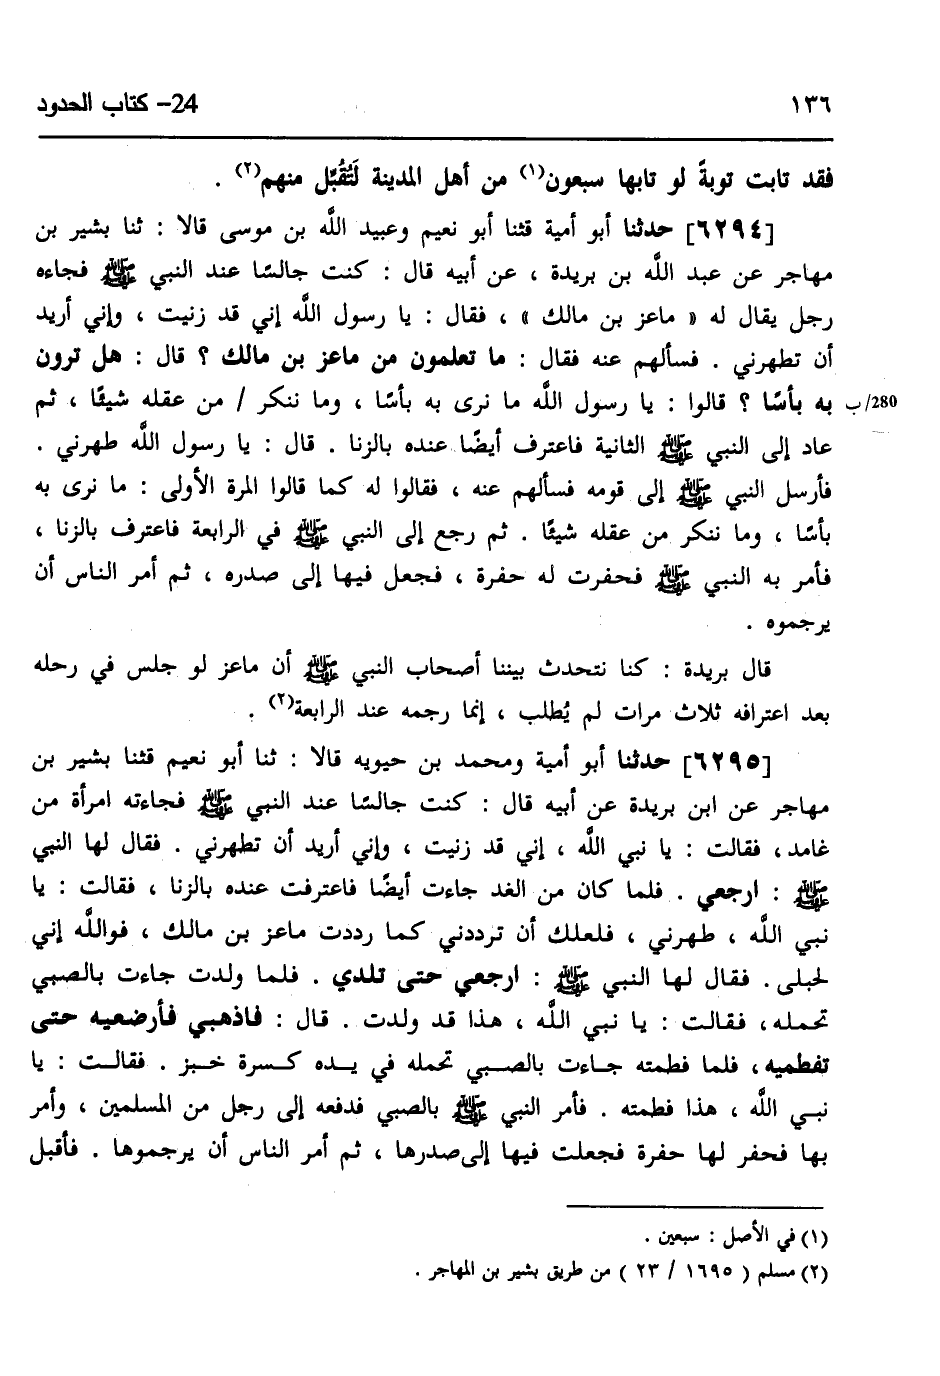 ١٣٦ 24- كتاب الحدود
فقد تابت توبةً لو تابها سبعون(١) من أهل المدينة لَتُقُبِّل منهم(٢) .
[٦٢٩٤] حدثنا أبو أمية قثنا أبو نعيم وعبيد اللَّه بن موسى قالا : ثنا بشير بن
مهاجر عن عبد اللَّه بن بريدة ، عن أبيه قال : كنت جالسًا عند النبي ﷺ فجاءه
رجل يقال له « ماعز بن مالك » ، فقال : يا رسول اللَّه إني قد زنيت ، وإني أريد
أن تطهرني . فسألهم عنه فقال : ما تعلمون من ماعز بن مالك ؟ قال : هل ترون
به بأسًا ؟ قالوا : يا رسول اللَّه ما نرى به بأسًا ، وما ننكر / من عقله شيئًا ، ثم
280/ب
عاد إلى النبي ﷺ الثانية فاعترف أيضًا عنده بالزنا . قال : يا رسول اللَّه طهرني .
فأرسل النبي ﷺ إلى قومه فسألهم عنه ، فقالوا له كما قالوا المرة الأولى : ما نرى به
بأسًا ، وما ننكر من عقله شيئًا . ثم رجع إلى النبي ﷺ في الرابعة فاعترف بالزنا ،
فأمر به النبي ﷺ فحفرت له حفرة ، فجعل فيها إلى صدره ، ثم أمر الناس أن
يرجموه .
قال بريدة : كنا نتحدث بيننا أصحاب النبي ﷺ أن ماعز لو جلس في رحله
بعد اعترافه ثلاث مرات لم يُطلب ، إنما رجمه عند الرابعة(٢) .
[٦٢٩٥] حدثنا أبو أمية ومحمد بن حيويه قالا : ثنا أبو نعيم قثنا بشير بن
مهاجر عن ابن بريدة عن أبيه قال : كنت جالسًا عند النبي ﷺ فجاءته امرأة من
غامد، فقالت : يا نبي اللَّه ، إني قد زنيت ، وإني أريد أن تطهرني . فقال لها النبي
ﷺ : ارجعي . فلما كان من الغد جاءت أيضًا فاعترفت عنده بالزنا ، فقالت : يا
نبي اللَّه ، طهرني ، فلعلك أن ترددني كما رددت ماعز بن مالك ، فواللَّه إني
لحبلى. فقال لها النبي ﷺ : ارجعي حتى تلدي . فلما ولدت جاءت بالصبي
تحمله، فقالت : يا نبي اللَّه ، هذا قد ولدت . قال : فاذهبي فأرضعيه حتى
تفطميه، فلما فطمته جاءت بالصبي تحمله في يده كسرة خبز . فقالت : يا
نبي اللَّه ، هذا فطمته . فأمر النبي ﷺ بالصبي فدفعه إلى رجل من المسلمين ، وأمر
بها فحفر لها حفرة فجعلت فيها إلى صدرها ، ثم أمر الناس أن يرجموها . فأقبل
(١) في الأصل : سبعين .
(٢) مسلم ( ١٦٩٥ / ٢٣ ) من طريق بشير بن المهاجر .